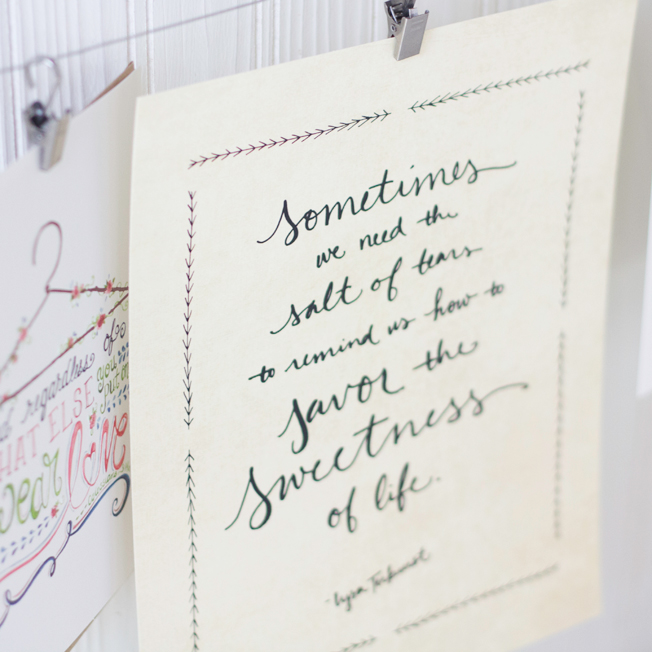 Sometimes
we need the
salt of tears
to remind us how to
savor the
sweetness
of life.
-Lysa TerKeurst
of
regardless
you
put on
HAT ELSE
wear love